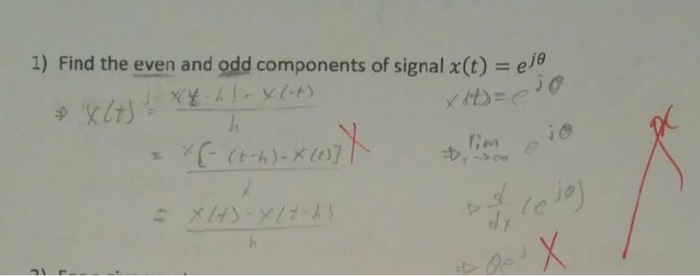 1) Find the even and odd components of signal x(t) = e^{jθ}
⇒ x(t) = x(t-h) - x(-t)
h
= x[-(t-h)-x(t)]
h
= x(t)-x(t-h)
h
x(t)=e^{jθ}
⇒ lim e^{jθ}
⇒ d/dx (e^{jθ})